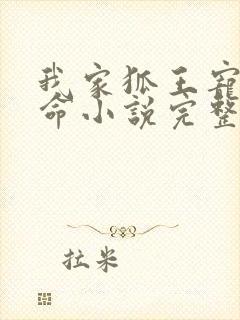 我家狐王寵
命小說完整
拉米